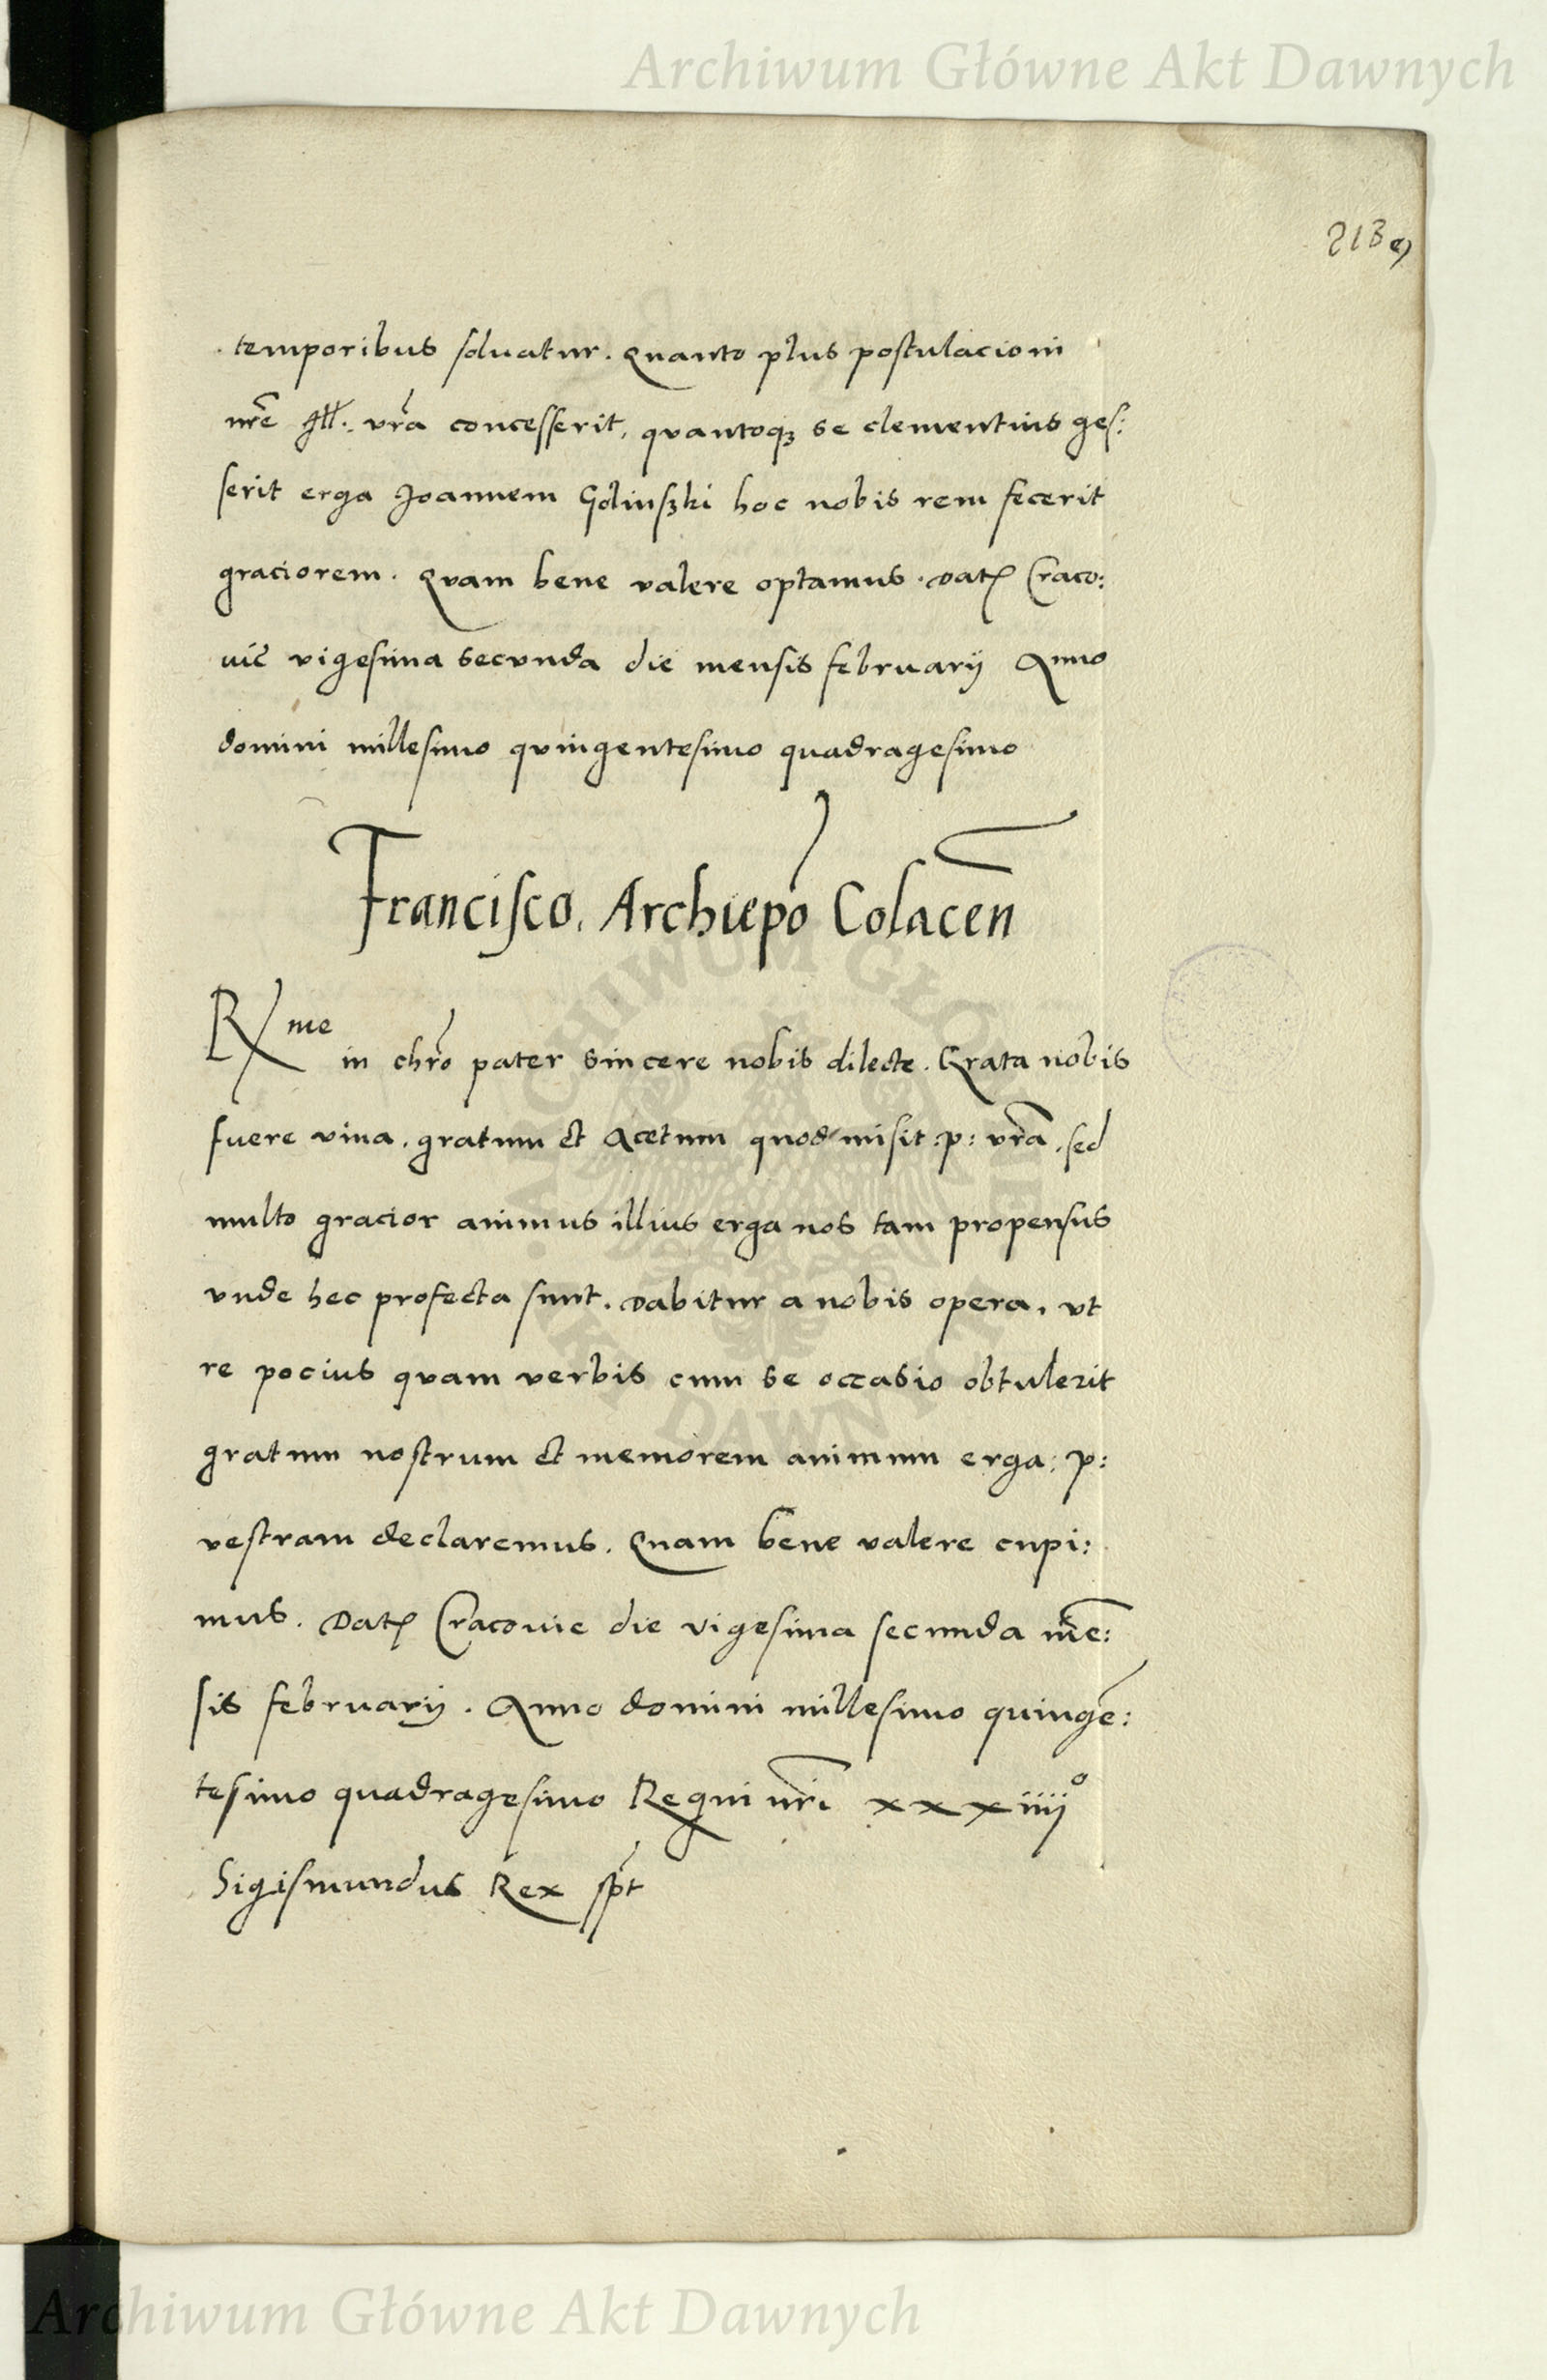 Archiwum Główne Akt Dawnych
213
temporibus soluatur. Quanto plus postulacioni
nr̃e Ill. vr̃a concesserit, quantoqꝫ se clementius ges:
serit erga Joannem Golinszki hoc nobis rem fecerit
graciorem. Quam bene valere optamus. Datꝭ Craco:
uie vigesima secunda die mensis februarij Anno
domini millesimo quingentesimo quadragesimo
Francisco. Archiep̃o Colaceñ
Rme in chr̃o pater sincere nobis dilecte. Grata nobis
fuere vina. gratum et Acetum quod misit :p: vr̃a. sed
multo gracior animus illius erga nos tam propensus
vnde hec profecta sunt. Dabitur a nobis opera, vt
re pocius quam verbis cum se occasio obtulerit
gratum nostrum et memorem animum erga :p:
vestram declaremus. Quam bene valere cupi:
mus. Datꝭ Cracouie die vigesima secunda mẽ:
sis februarij. Anno domini millesimo quingẽ:
tesimo quadragesimo Regni nr̃i xxxiiijo
Sigismundus Rex sp̃t
ARCHIWUM GŁÓWNE AKT DAWNYCH
Archiwum Główne Akt Dawnych